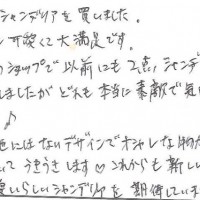 シャンデリアを買いました。
可愛くて大満足です。
ショップで以前にも2点、シャンデ
しましたが どれも本当に素敵で気
♪
にはないデザインでオシャレな物が
いて うきうきします♡これからも新しい
らしいシャンデリアを期待していま